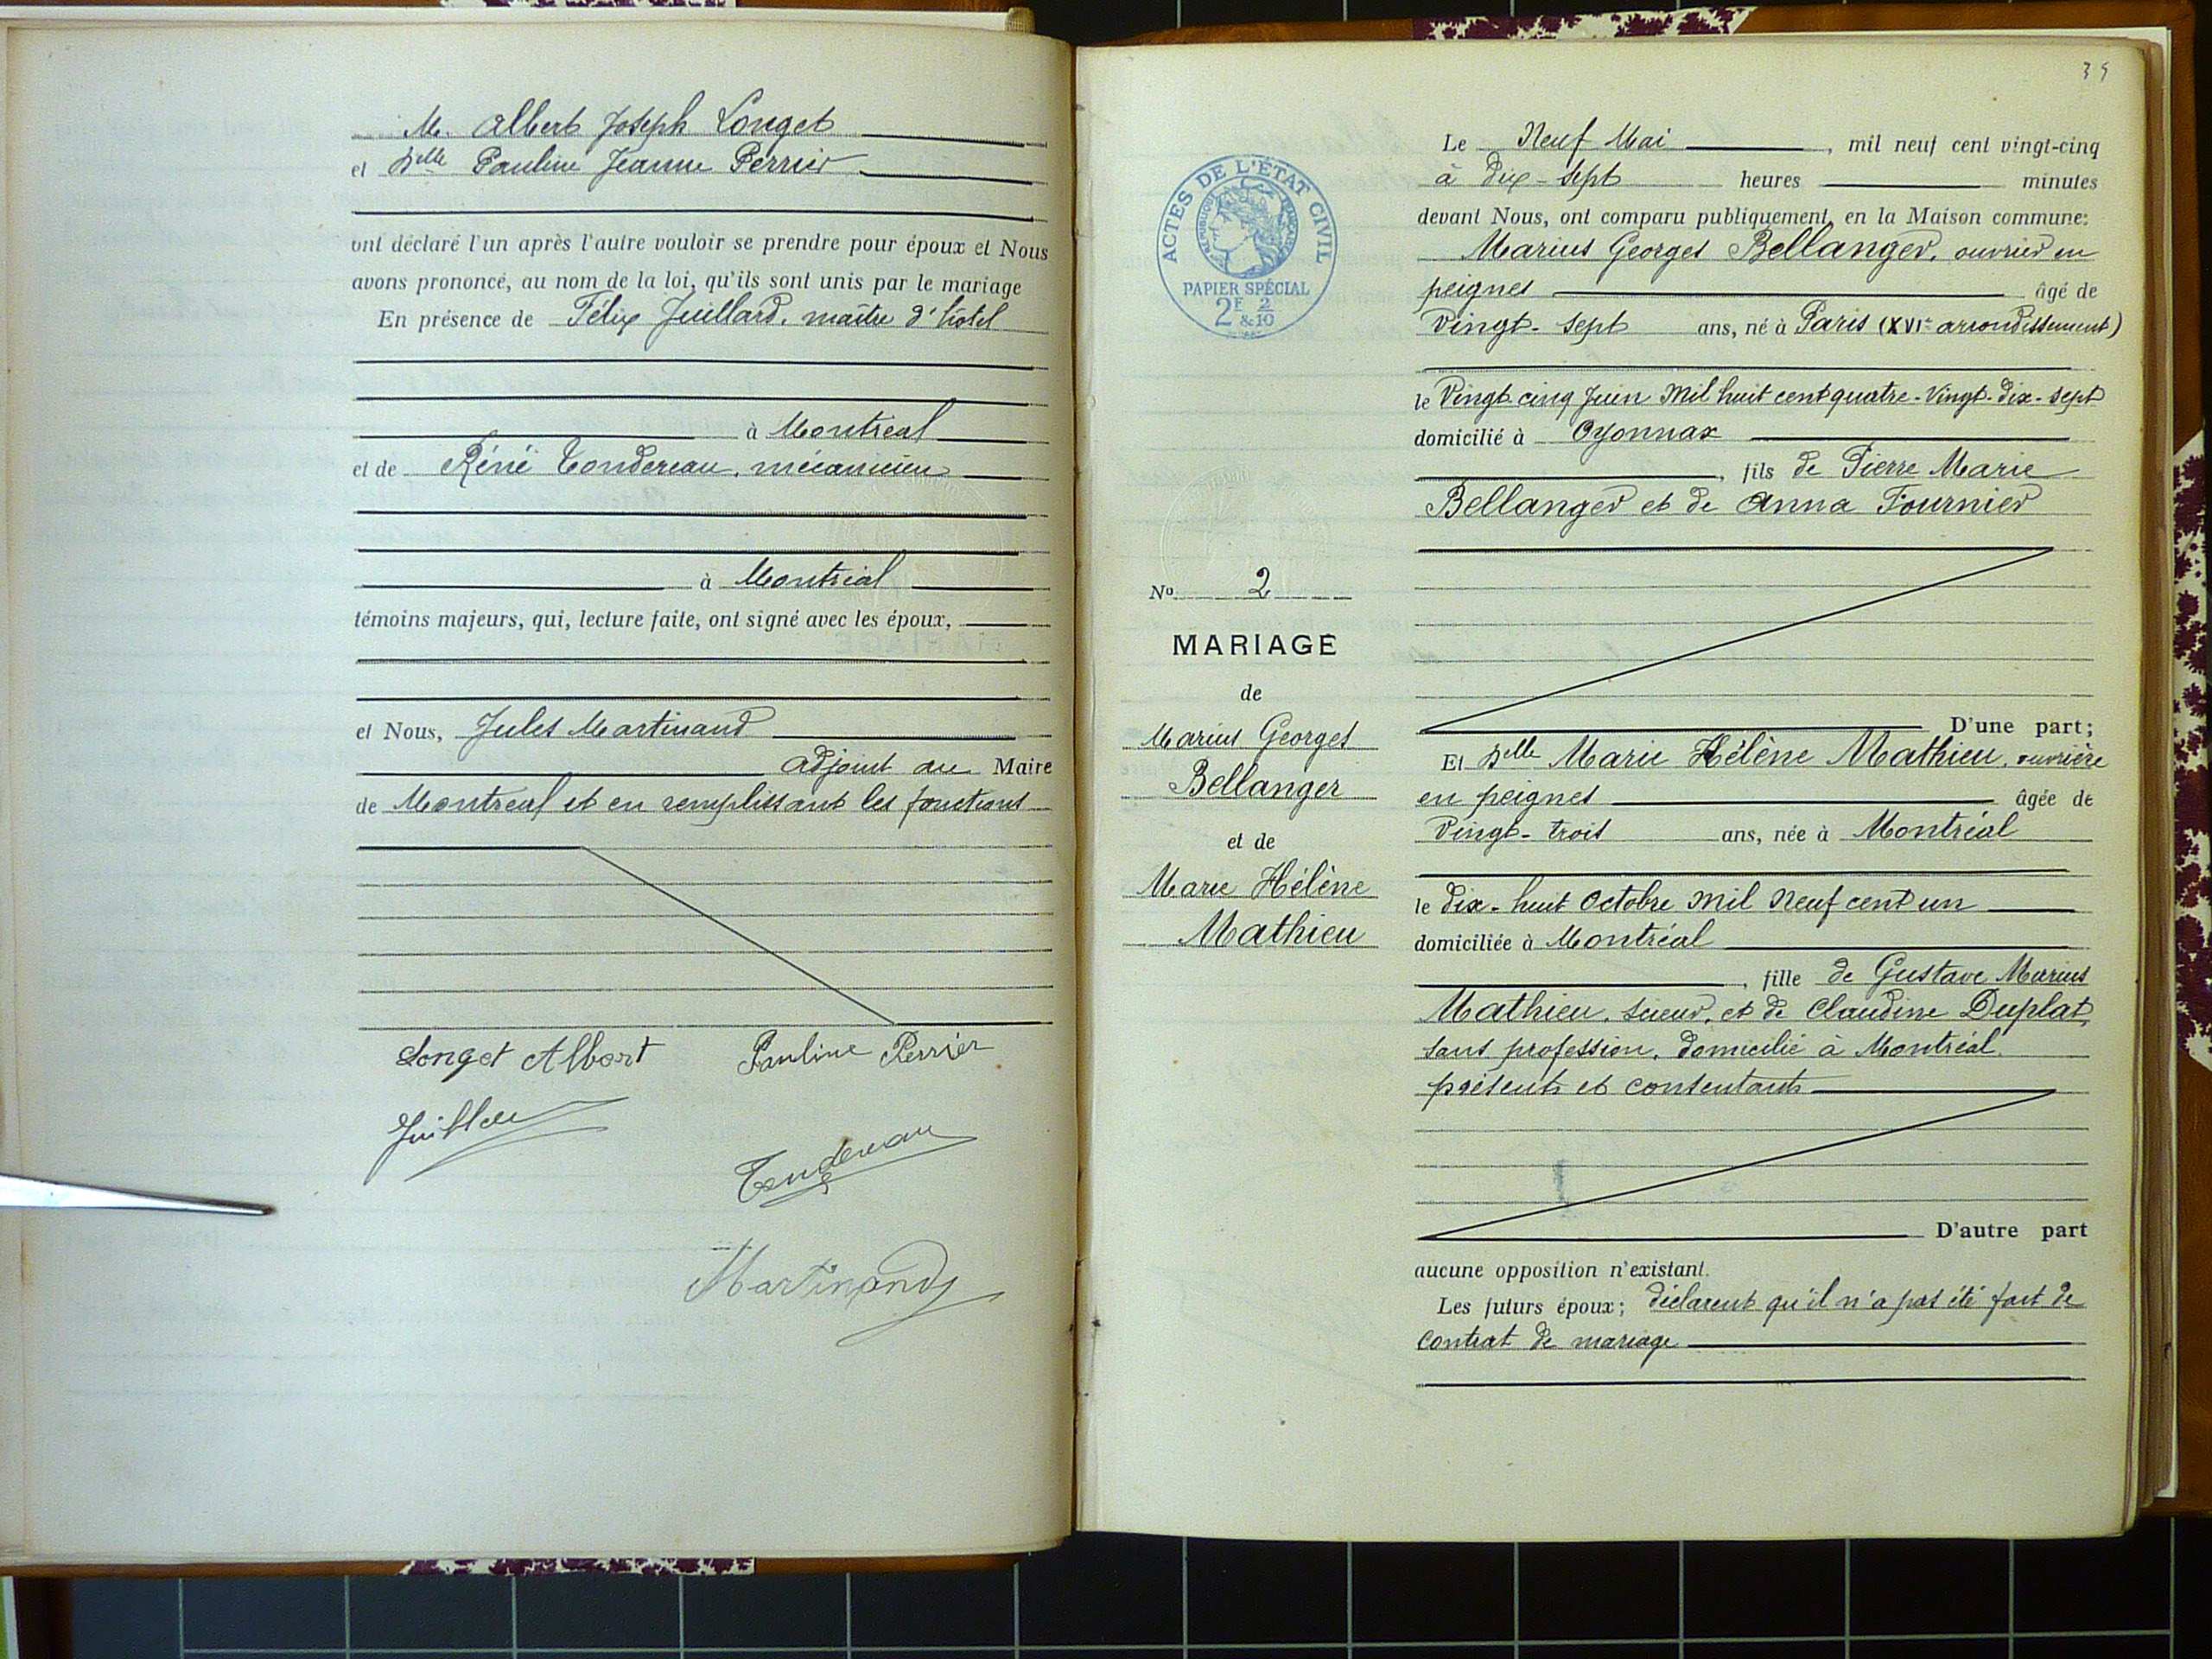 M. Albert Joseph Longet
et Delle Pauline Jeanne Perrier
ont déclaré l'un après l'autre vouloir se prendre pour époux et Nous
avons prononcé, au nom de la loi, qu'ils sont unis par le mariage
En présence de Félix Juillard, maître d'hôtel
à Montréal
et de Réné Tondereau, mécanicien
à Montréal
témoins majeurs, qui, lecture faite, ont signé avec les époux,
et Nous, Jules Martinand
adjoint au Maire
de Montréal et en remplissant les fonctions
Longet Albert Pauline Perrier
Martinand
35
Le Neuf Mai, mil neuf cent vingt-cinq
à dix-sept heures minutes
devant Nous, ont comparu publiquement, en la Maison commune:
Marius Georges Bellanger, ouvrier en
peignes âgé de
vingt-sept ans, né à Paris (XVIe arrondissement)
le vingt-cinq Juin Mil huit cent quatre-vingt-dix-sept
domicilié à Oyonnax
, fils de Pierre Marie
Bellanger et de Anna Fournier
D'une part;
Et Delle Marie Hélène Mathieu, ouvrière
en peignes âgée de
vingt-trois ans, née à Montréal
le dix-huit Octobre Mil Neuf cent un
domiciliée à Montréal
, fille de Gustave Marius
Mathieu, scieur, et de Claudine Duplat,
sans profession, domicilié à Montréal.
présents et consentants
D'autre part
aucune opposition n'existant.
Les futurs époux; déclarent qu'il n'a pas été fait de
contrat de mariage
ACTES DE L'ÉTAT CIVIL
RÉPUBLIQUE FRANÇAISE
PAPIER SPÉCIAL
2F 2
&10
No 2
MARIAGE
de
Marius Georges
Bellanger
et de
Marie Hélène
Mathieu